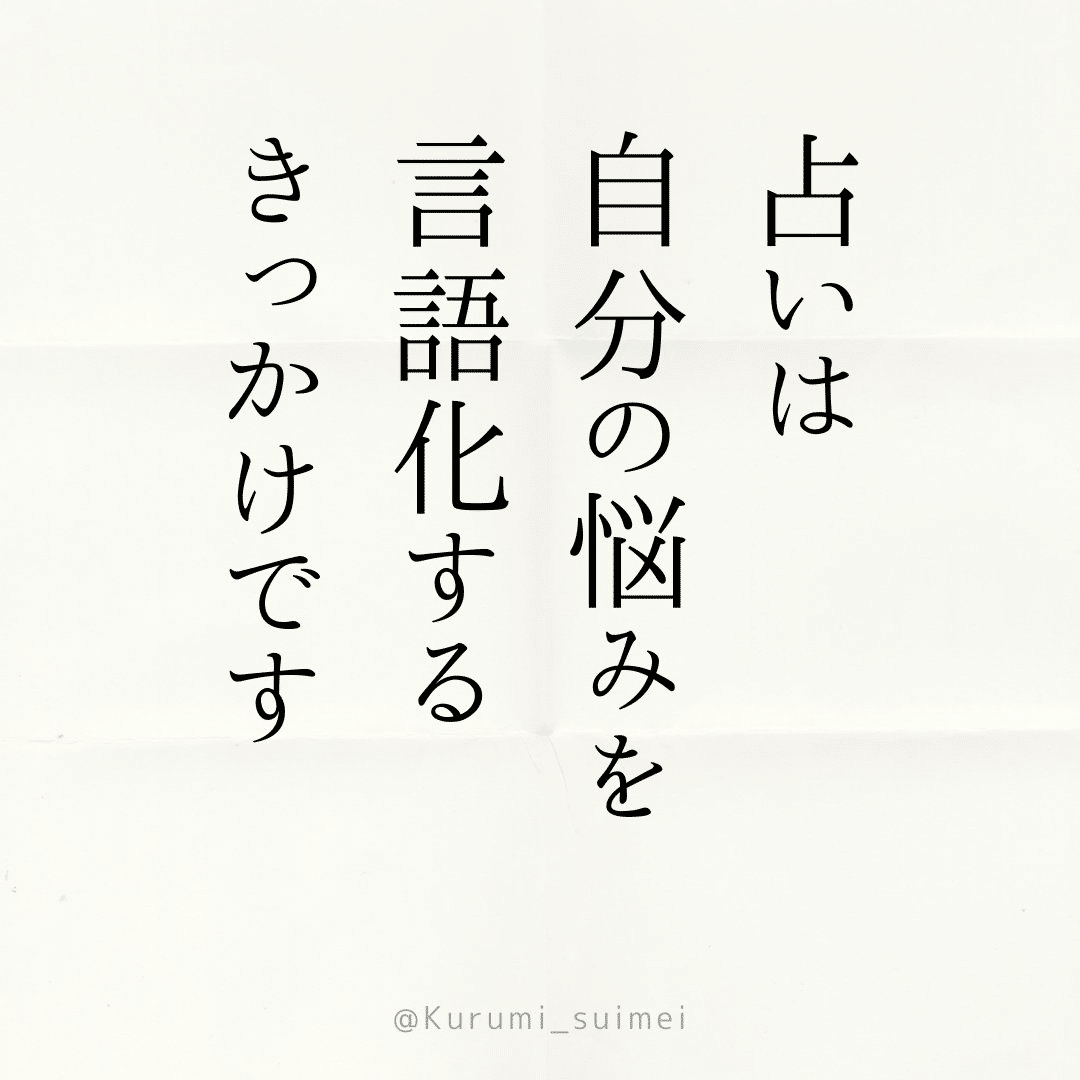 占いは
自分の悩みを
言語化する
きっかけです
@Kurumi_suimei